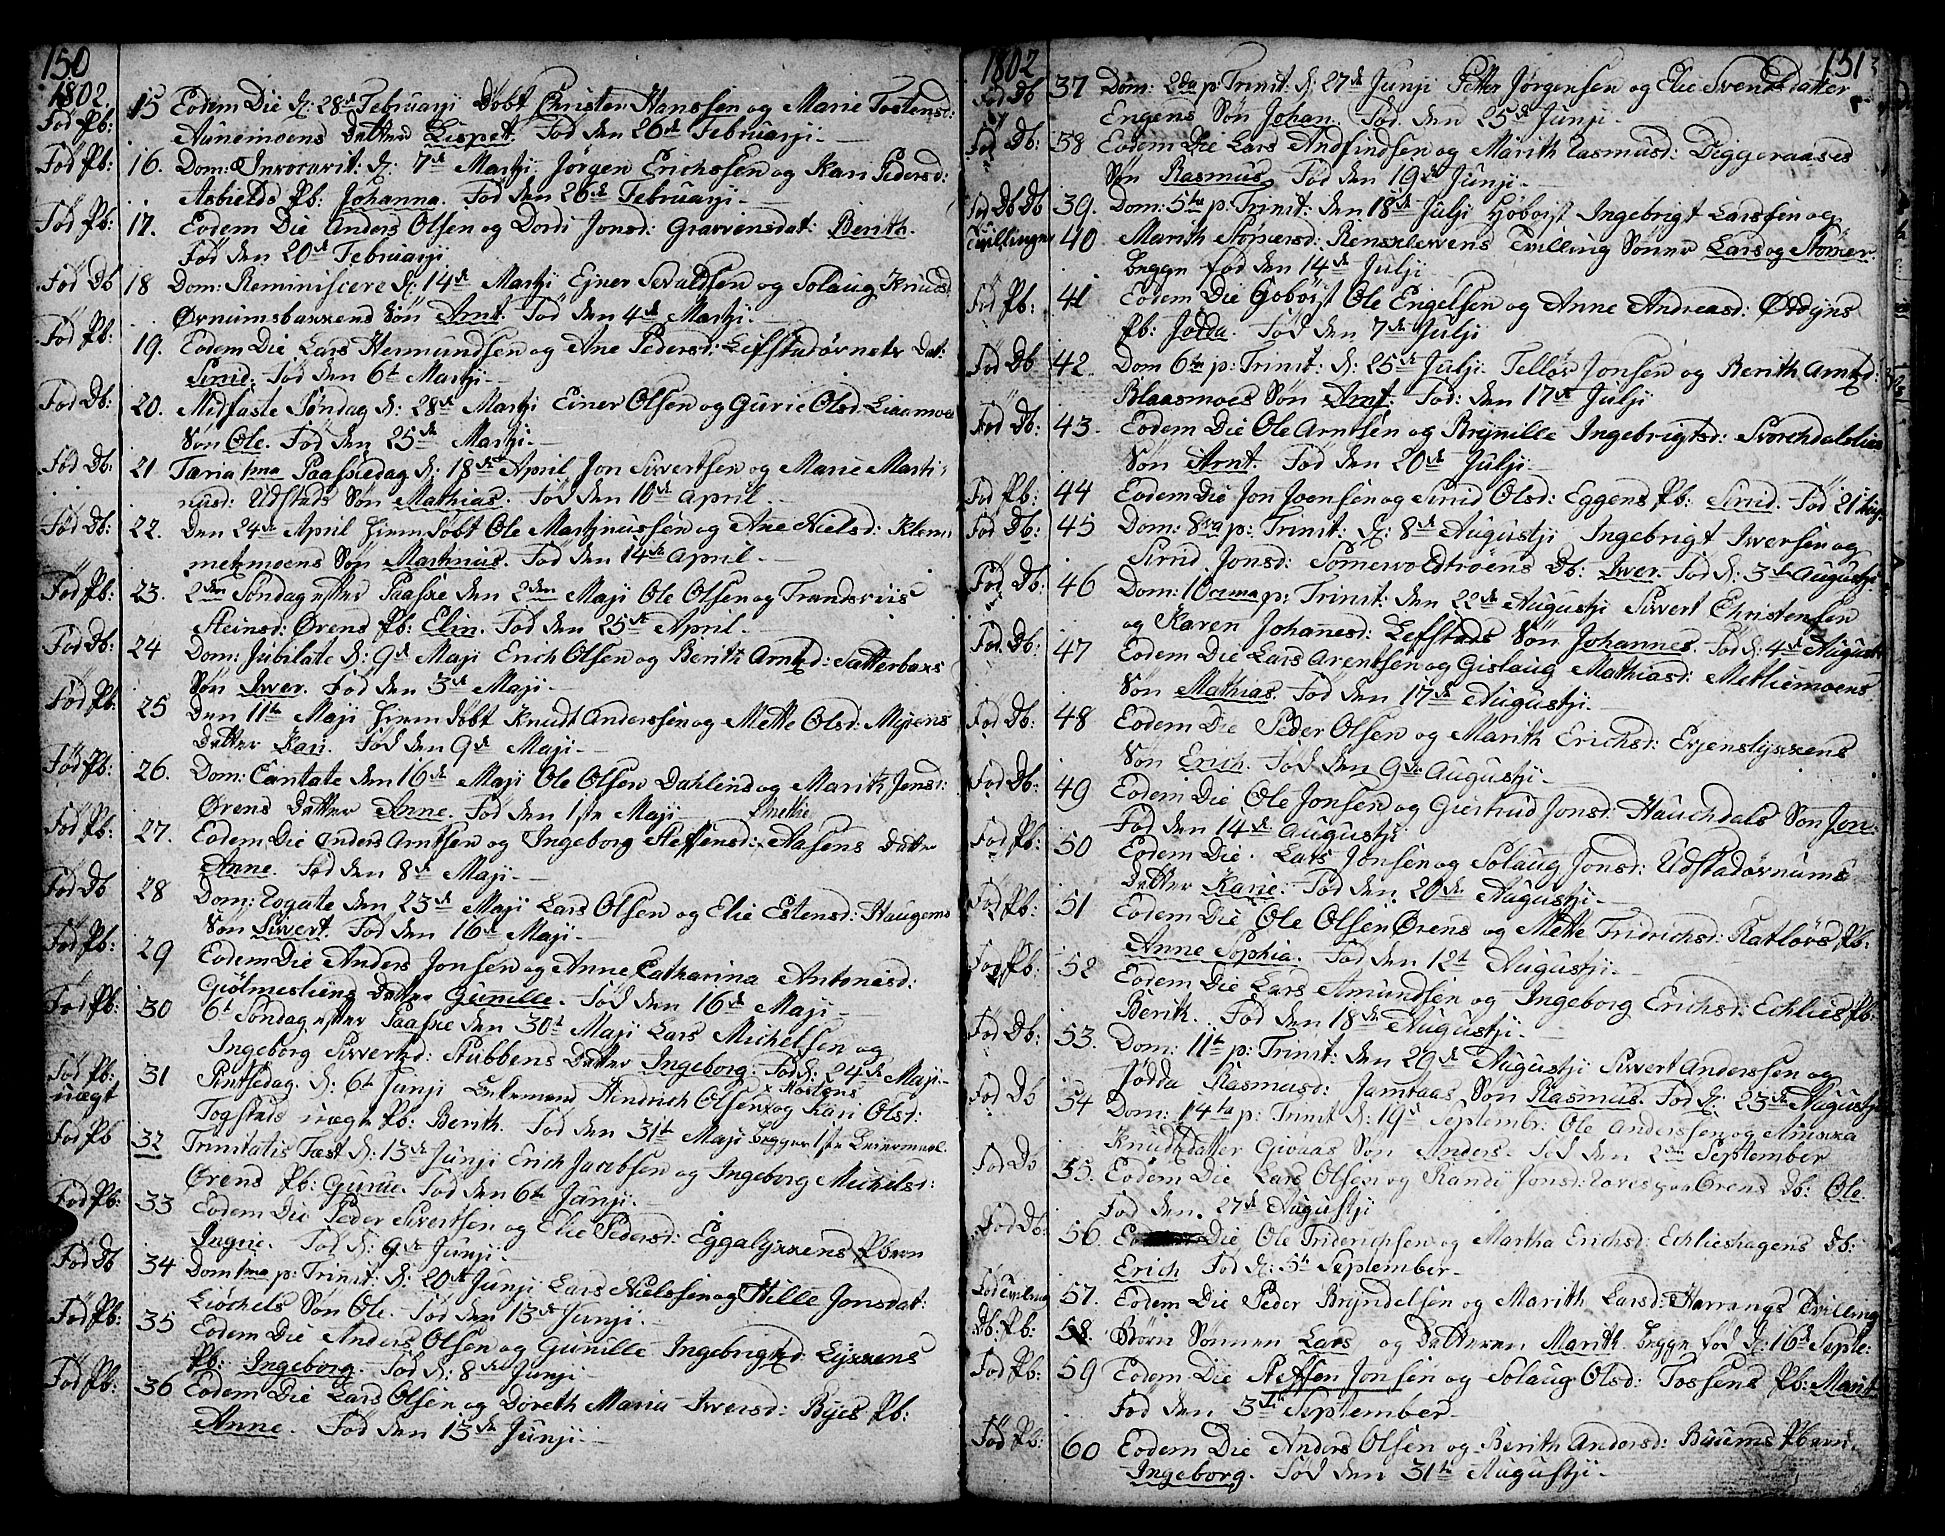 150
1802.
Fød Pb: 15 Eodem Die d: 28de Februarji Døbt Christen Hanssen og Marie Tostensd:
Aunemoens Datter Lispet. Fød den 26de Februarji
Fød Pb: 16. Dom: Invocavit: d: 7de Martji Jørgen Erichssen og Kari Pedersd:
Asbields Pb: Johanna. Fød den 26de Februarji
Fød Pb: 17. Eodem Die Anders Olsen og Dordi Jonsd: Gravvensdat: Berith.
Fød den 20de Februarji
Fød Db 18 Dom: Reminiscere d: 14de Martji Ejner Sivaldsen og Solaug Knuds
Ørnumsbakkens Søn Arnt. Fød den 4de Martji
Fød Pb: 19. Eodem Die Lars Hermundsen og Ane Pedersd: Lefstadørnets Dat:
Sirid. Fød den 6t Martji
Fød Db: 20. Midfaste Søndag d: 28de Martji Einer Olsen og Gurie Olsd: Liaamoes
Søn Ole. Fød den 25de Martji
Fød Db: 21 Faria 1ma Paaskedag d: 18de April Jon Sivertsen og Marie Marti-
nusd: Udstads Søn Mathias. Fød den 10de April
Fød Db: 22. Den 24de April Hiemdøbt Ole Martinussen og Ane Nielsd: Klem-
metzmoens Søn Martinus. Fød den 14de April
Fød Pb: 23. 2den Søndag efter Paaske den 2den Maji Ole Olsen og Trandsviis
Steinsd: Ørens Pb: Elin. Fød den 25de April
Fød Db: 24 Dom: Jubilate d: 9de Maji Erich Olsen og Berith Arntzd: Sætterbaks
Søn Iwer. Fød den 3de Maji
Fød Pb: 25 Den 11te Maji Hiemdøbt Knudt Anderssen og Mette Olsd: Myrens
Datter Kari. Fød den 9de Maji
Fød Pb: 26. Dom: Cantate den 16de Maji Ole Olsen Dahlens og Marith Jonsd:
Ørens Datter Anne. Fød den 1ste Maji
Fød Pb: 27. Eodem Die Anders Arntsen og Ingeborg Steffensd: Aasens Datter
Anne. Fød den 8de Maji
Fød Db 28 Dom: Rogate den 23de Maji Lars Olsen og Elie Estensd: Haugens
Søn Siwert. Fød den 16de Maji
Fød Pb: 29 Eodem Die Anders Jonsen og Anne Catharina Antonisd:
Giølmesliens Datter Gunille. Fød den 16de Maji
Fød Pb: 30 6t Søndag efter Paaske den 30t Maji Lars Michelsen og
Ingeborg Sivertzd: Stubbens Datter Ingeborg. Fød d: 24de Maji
Fød Pb: 31 Pintsedag d: 6t Junji Hendrich Olsen og Kari Olsd:
uægt Fogstads uægte Pb: Berith. Fød den 31t Maji begges 1ste Leiermaal
Fød Pb 32 Trinitatis Fæst d: 13de Junji Erich Jacobsen og Ingeborg Michelsd:
Ørens Pb: Gurue. Fød den 6te Junji
Fød Pb: 33 Eodem Die Peder Sivertsen og Elie Pedersd: Eggalykkens Pbarn
Ingrie. Fød d: 9de Junji
Fød Db 34 Dom 1ma p: Trinit: d: 20de Junji Lars Nielssen og Hille Jonsdat:
Liøchels Søn Ole. Fød den 13de Junji
Fød Pb: 35 Eodem Die Anders Olsen og Gunille Ingebrigtzd Lykkens
Pb: Ingeborg. Fød d: 8de Junji
Fød Pb: 36 Eodem Die Lars Olsen og Doreth Maria Iwersd: Byes Pb:
Anne. Fød den 13de Junji
1802 151
Fød Db 37 Dom: 2da p: Trinit: d: 27de Junji Petter Jørgensen og Elie Svendsdatter
Engens Søn Johan. Fød den 25de Junji
Fød Db: 38 Eodem Die Lars Andfindsen og Marith Rasmusd: Diggeraases
Søn Rasmus. Fød den 19de Junji
Fød Db Db 39. Dom: 5ta p: Trinit: den 18de Julji Hoboist Ingebrigt Larssen og
Tvillinger 40 Marith Størkersd: Rensklevens Tvilling Sønner Lars og Størker.
begge fød den 14de Julji
Fød Pb: 41 Eodem Die Goboist Ole Engelsen og Anne Andreasd: Ørdøyns
Pb: Jødda. Fød den 7de Julji
Fød Db: 42. Dom 6ta p: Trinit: d: 25de Julji Tellør Jonsen og Berith Arntzd:
Blaasmoes Søn Arnt. Fød: den 17de Julji
Fød Db: 43. Eodem Die Ole Arntsen og Brynnille Ingebrigtsd: Svorchdalslias
Søn Arnt. Fød den 20de Julji
Fød Pb: 44 Eodem Die Jon Joensen og Sirid Olsd: Eggens Pb: Sirid. Fød 21
Fød Db: 45 Dom: 8va p: Trinit: d: 8de Augustji Ingebrigt Iwersen og
Sirid Jonsd: Somervoldtrøens Db: Iwer. Fød d: 3de Augustji
Fød Db: 46 Dom: 10ma p: Trinit: den 22de Augustji Siwert Christensen
og Karen Johannesd: Lefstads Søn Johannes. Fød d: 4de Augustji
Fød Db: 47 Eodem Die Lars Arentsen og Gislaug Mathiasd: Metliemoens
Søn Mathias. Fød den 17de Augustji
Fød Db: 48 Eodem Die Peder Olsen og Marith Erichsd: Evjenslykkens
Søn Erich. Fød den 9de Augustji
Fød Db: 49 Eodem Die Ole Jonsen og Giertrud Jonsd: Hauchdals Søn Jon.
Fød den 14de Augustji
Fød Pb: 50 Eodem Die. Lars Jonsen og Solaug Jonsd: Udstadørnums
Datter Karie. Fød den 20de Augustji
Fød Pb: 51 Eodem Die Ole Olsen Ørens og Mette Fridrichsd: Katløes Pb:
Anne Sophia. Fød den 12t Augustji
Fød Pb: 52 Eodem Die Lars Amundsen og Ingeborg Erichsd: Echlies Pb:
Berith. Fød den 18de Augustji
Fød Db: 53. Dom: 11te p: Trinit: den 29de Augustji Siwert Anderssen og
Jødda Rasmusd: Jamtaas Søn Rasmus. Fød d: 23de Augustji
Fød Db 54 Dom: 14ta p: Trinit d: 19de Septembr: Ole Anderssen og Annikka
Knudsdatter Givaas Søn Anders. Fød den 2den September
Fød Db 55. Eodem Die Lars Olsen og Randi Jonsd: Ørens Db: Ole.
Fød den 27de Augustji
Fød Db: 56. Die Ole Friderichsen og Martha Erichsd: Echlieshagens Db:
Erich Fød d: 5te September
57. Eodem Die Peder Bryndelsen og Marith Larsd: Harrangs Tvilling
Db: Pb: 58. Børn Sønnen Lars og Datteren Marith begge fød d: 16de Septe:
Fød Pb: 59 Eodem Die Steffen Jonsen og Solaug Olsd: Fossens Pb: Marit
Fød den 3de September
Fød Pb: 60 Eodem Die Anders Olsen og Berith Andersd: Buums Pbarn.
Ingeborg. Fød den 31te Augustji